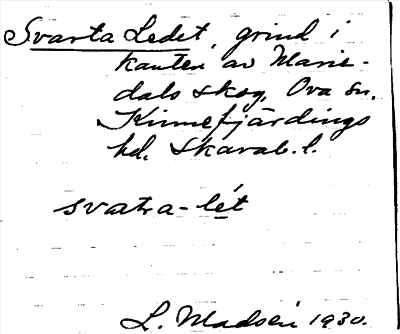 Svarta Ledet, grind i
kanten av Marie-
dals skog, Ova sn.
Kinnefjärdings
hd. Skarab. l.
svatra-lét
L. Madsén 1930.